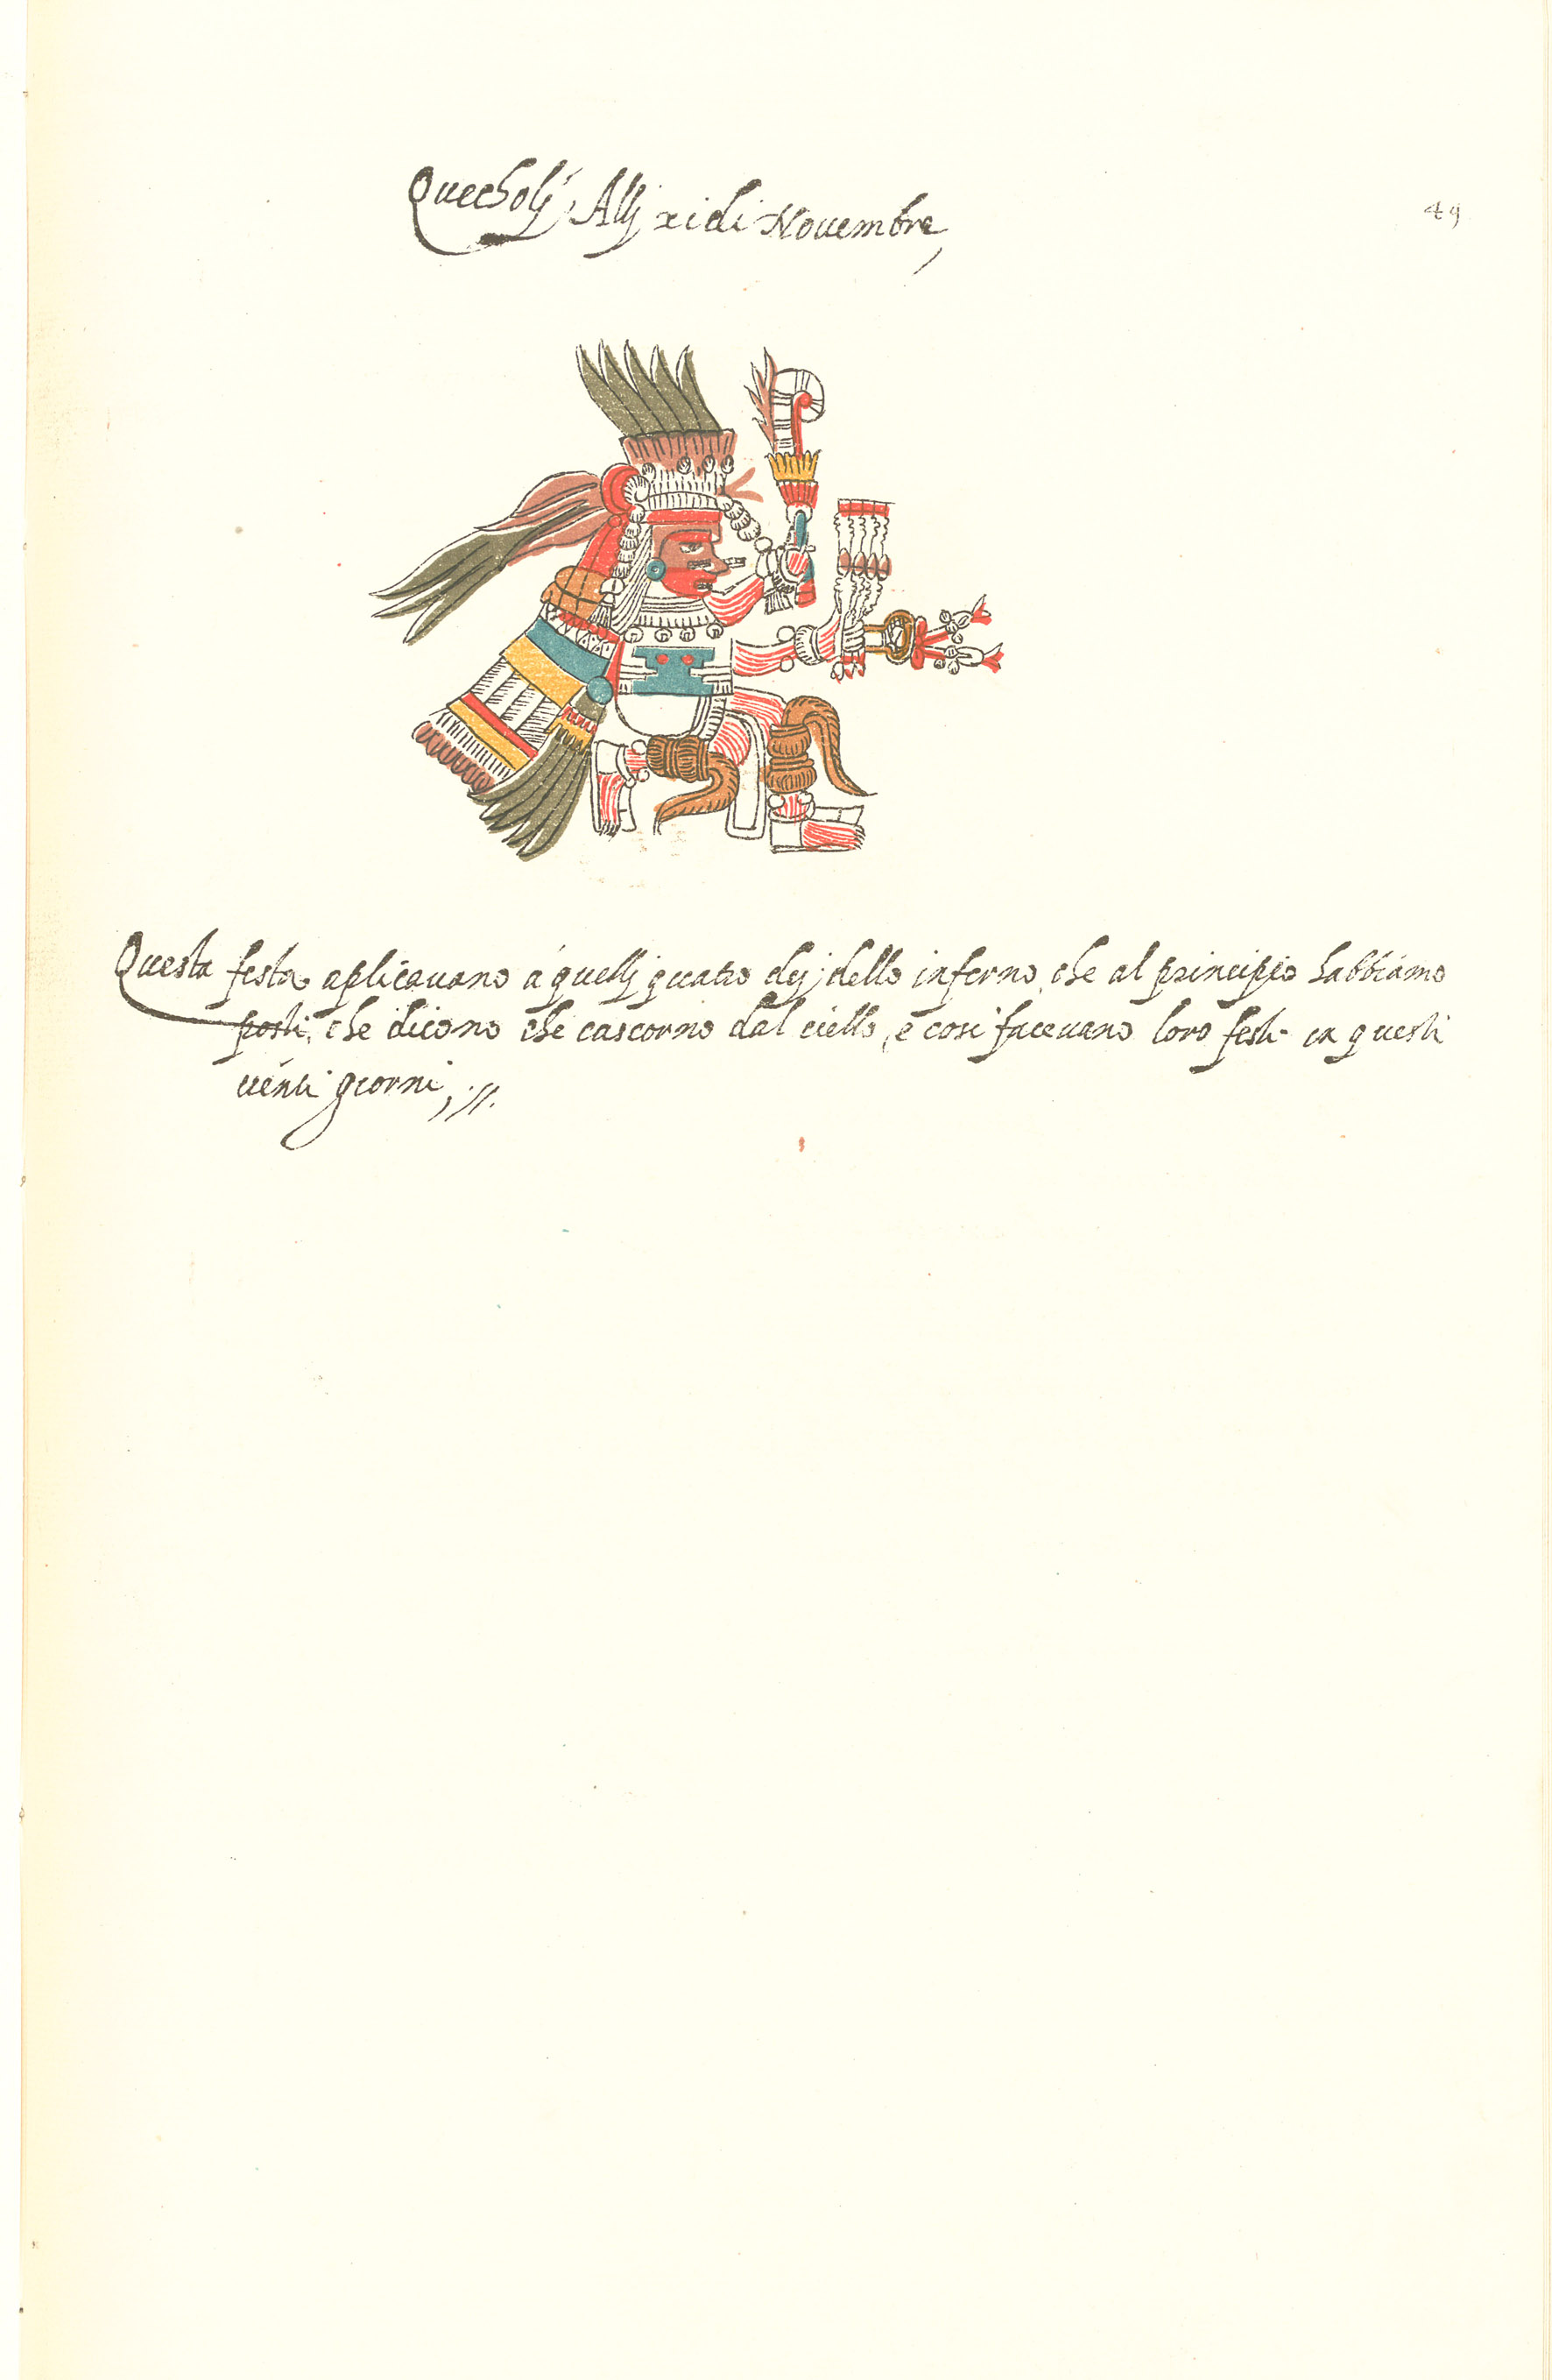 Quecholj, Allj xi di Nouembre,
49
Questa festa aplicauano a quellj quatro dej, dello inferno, che al principio habbiamo
posti, che dicono che cascorno dal ciello, e cosi faceuano loro festa in questi
uenti giorni, //.